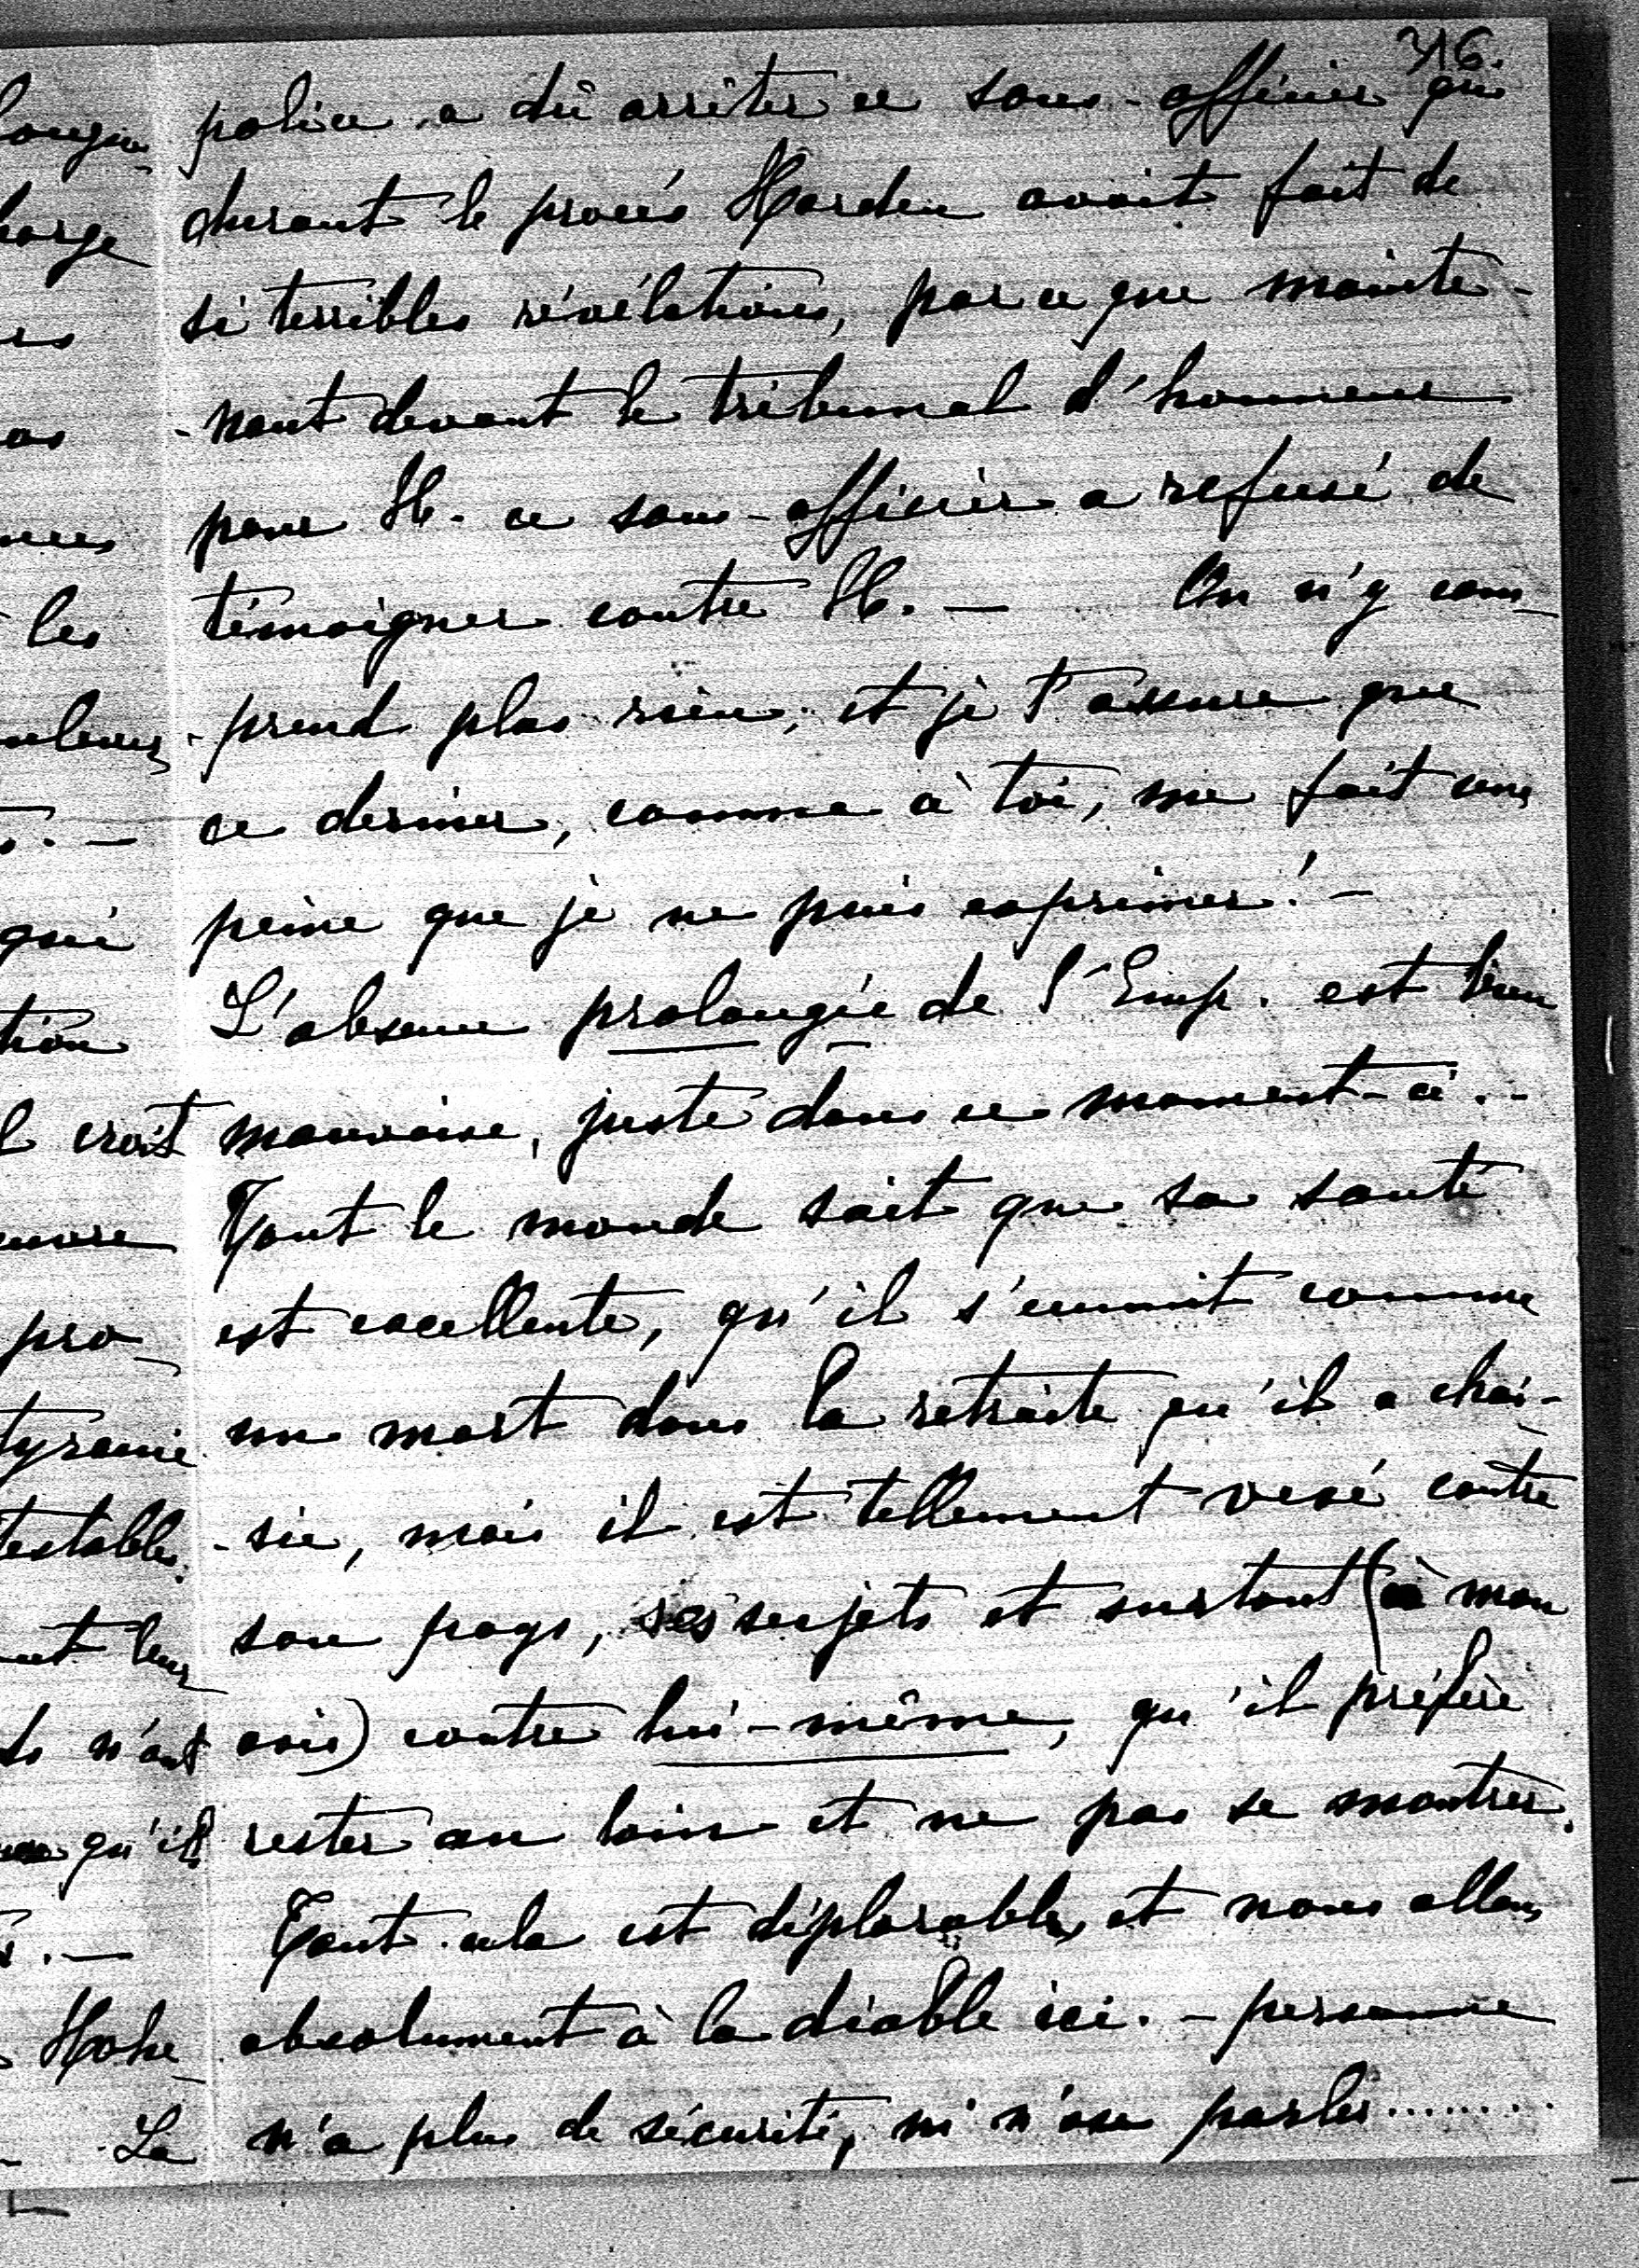 316.
police a dû arrêter ce sous-officier qui
durant le procés Harden avait fait de
si terribles révélations, parce que mainte-
-nant devant le tribunal d'honneur
pour H. ce sous-officier a refusé de
témoigner contre H. — On n'y com-
-prend plus rien, et je t'assure que
ce dernier, comme à toi, me fait une
peine que je ne puis exprimer! —
L'absence prolongée de l'Emp. est bien
mauvaise, juste dans ce moment-ci..
Tout le monde sait que sa santé
est excellente, qu'il s'ennuit comme
un mort dans la retraite qu'il a choi-
-sie, mais il est tellement vexé contre
son pays, ses sujets et surtout (à mon
avis) contre lui-même, qu'il préfère
rester au loin et ne pas se montrer.
Tout cela est déplorable, et nous allons
absolument à la diable ici. - personne
n'a plus de sécurité, ni n'ose parler........
les
croit
pro-
tyranie
n'ont
qu'il
Hohe-
La